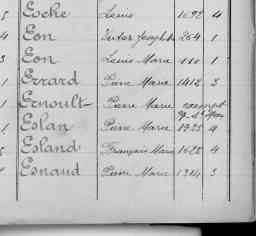 5 Esche Louis 1092 4
4 Eon Victor Joseph 264 1
3 Eon Louis Marie 110 1
1 Errard Pierre Marie 1412 3
1 Ernoult Pierre Marie exempt
1 Eslan Pierre Marie 1925 4
5 Esland François Marie 1622 4
Esnaud Pierre Marie 1314 3